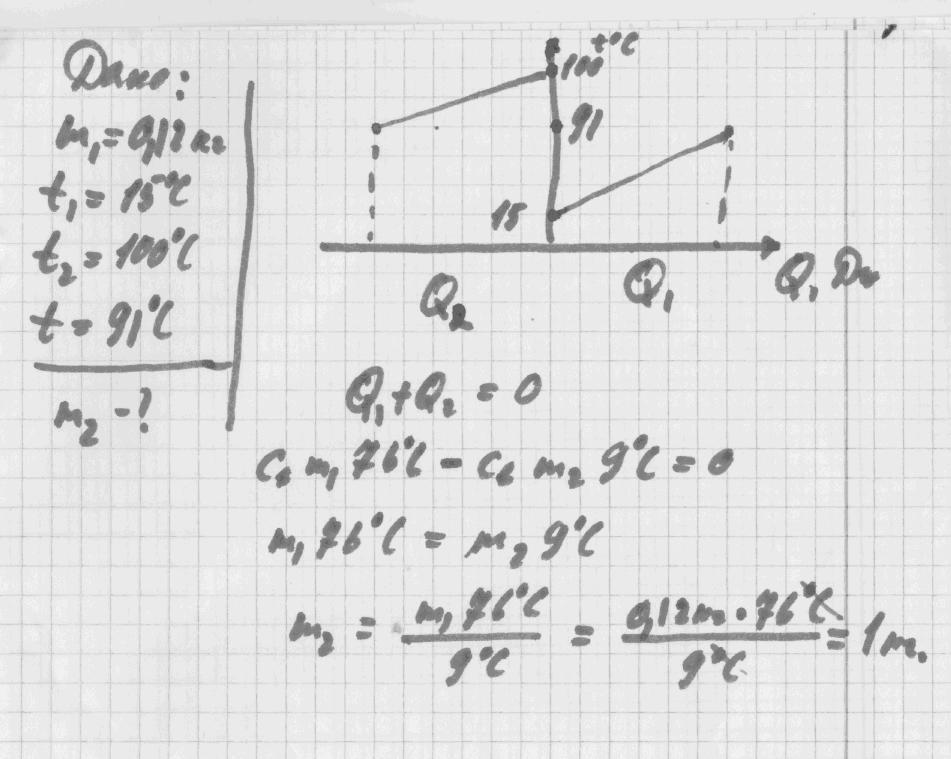 Дано:
m₁ = 0,12 кг
t₁ = 15°C
t₂ = 100°C
t = 91°C
m₂ - ?
t°C
100
91
15
Q₂
Q₁
Q, Дж
Q₁ + Q₂ = 0
cв m₁ 76°C - cв m₂ 9°C = 0
m₁ 76°C = m₂ 9°C
m₂ = m₁ 76°C / 9°C = 0,12 кг · 76°C / 9°C = 1 кг.